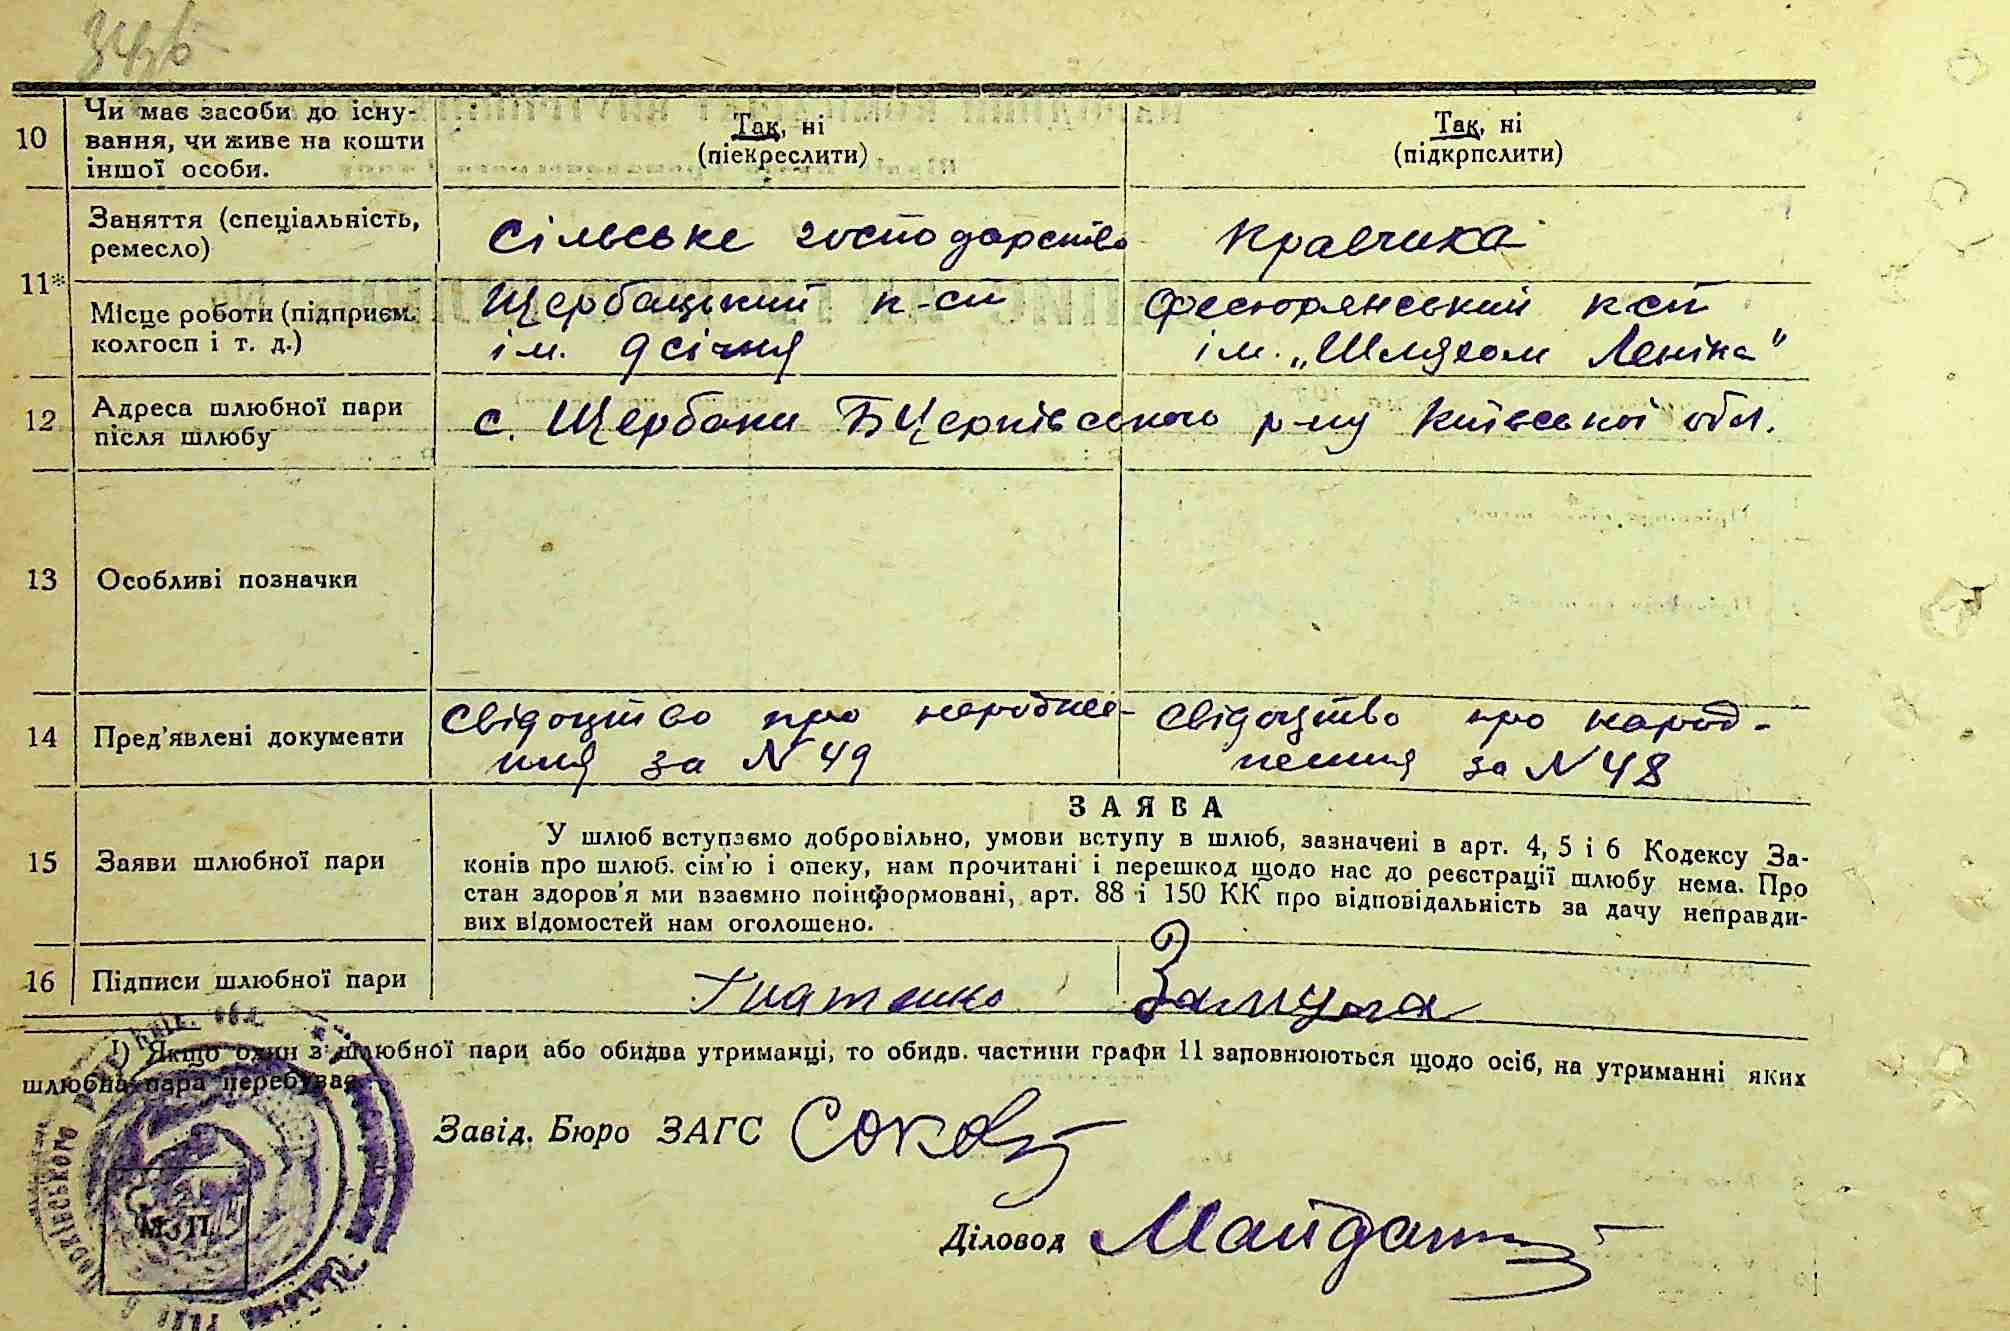 10 Чи має засоби до існу-
вання, чи живе на кошти
іншої особи.
Так, ні
(піекреслити)
Так, ні
(підкрпслити)
11* Заняття (спеціальність,
ремесло)
Сільське господарство
Кравчиха
Місце роботи (підприєм.
колгосп і т. д.)
Щербацький к-сп
ім. 9 січня
Фесюрянський ксп
ім. „Шляхом Леніна"
12 Адреса шлюбної пари
після шлюбу
с. Щербаки БЦерківського р-ну Київської обл.
13 Особливі позначки
14 Пред'явлені документи
Свідоцтво про народжен-
ння за N 49
Свідоцтво про народ-
ження за N 48
15 Заяви шлюбної пари
ЗАЯВА
У шлюб вступаємо добровільно, умови вступу в шлюб, зазначені в арт. 4, 5 і 6 Кодексу За-
конів про шлюб. сім'ю і опеку, нам прочитані і перешкод щодо нас до реєстрації шлюбу нема. Про
стан здоров'я ми взаємно поінформовані, арт. 88 і 150 КК про відповідальність за дачу неправди-
вих відомостей нам оголошено.
16 Підписи шлюбної пари
Гнатенко
Замула
1) Якщо один з шлюбної пари або обидва утриманці, то обидв. частини графи 11 заповнюються щодо осіб, на утриманні яких
шлюбна пара перебуває.
Завід. Бюро ЗАГС
Діловод
М.П.